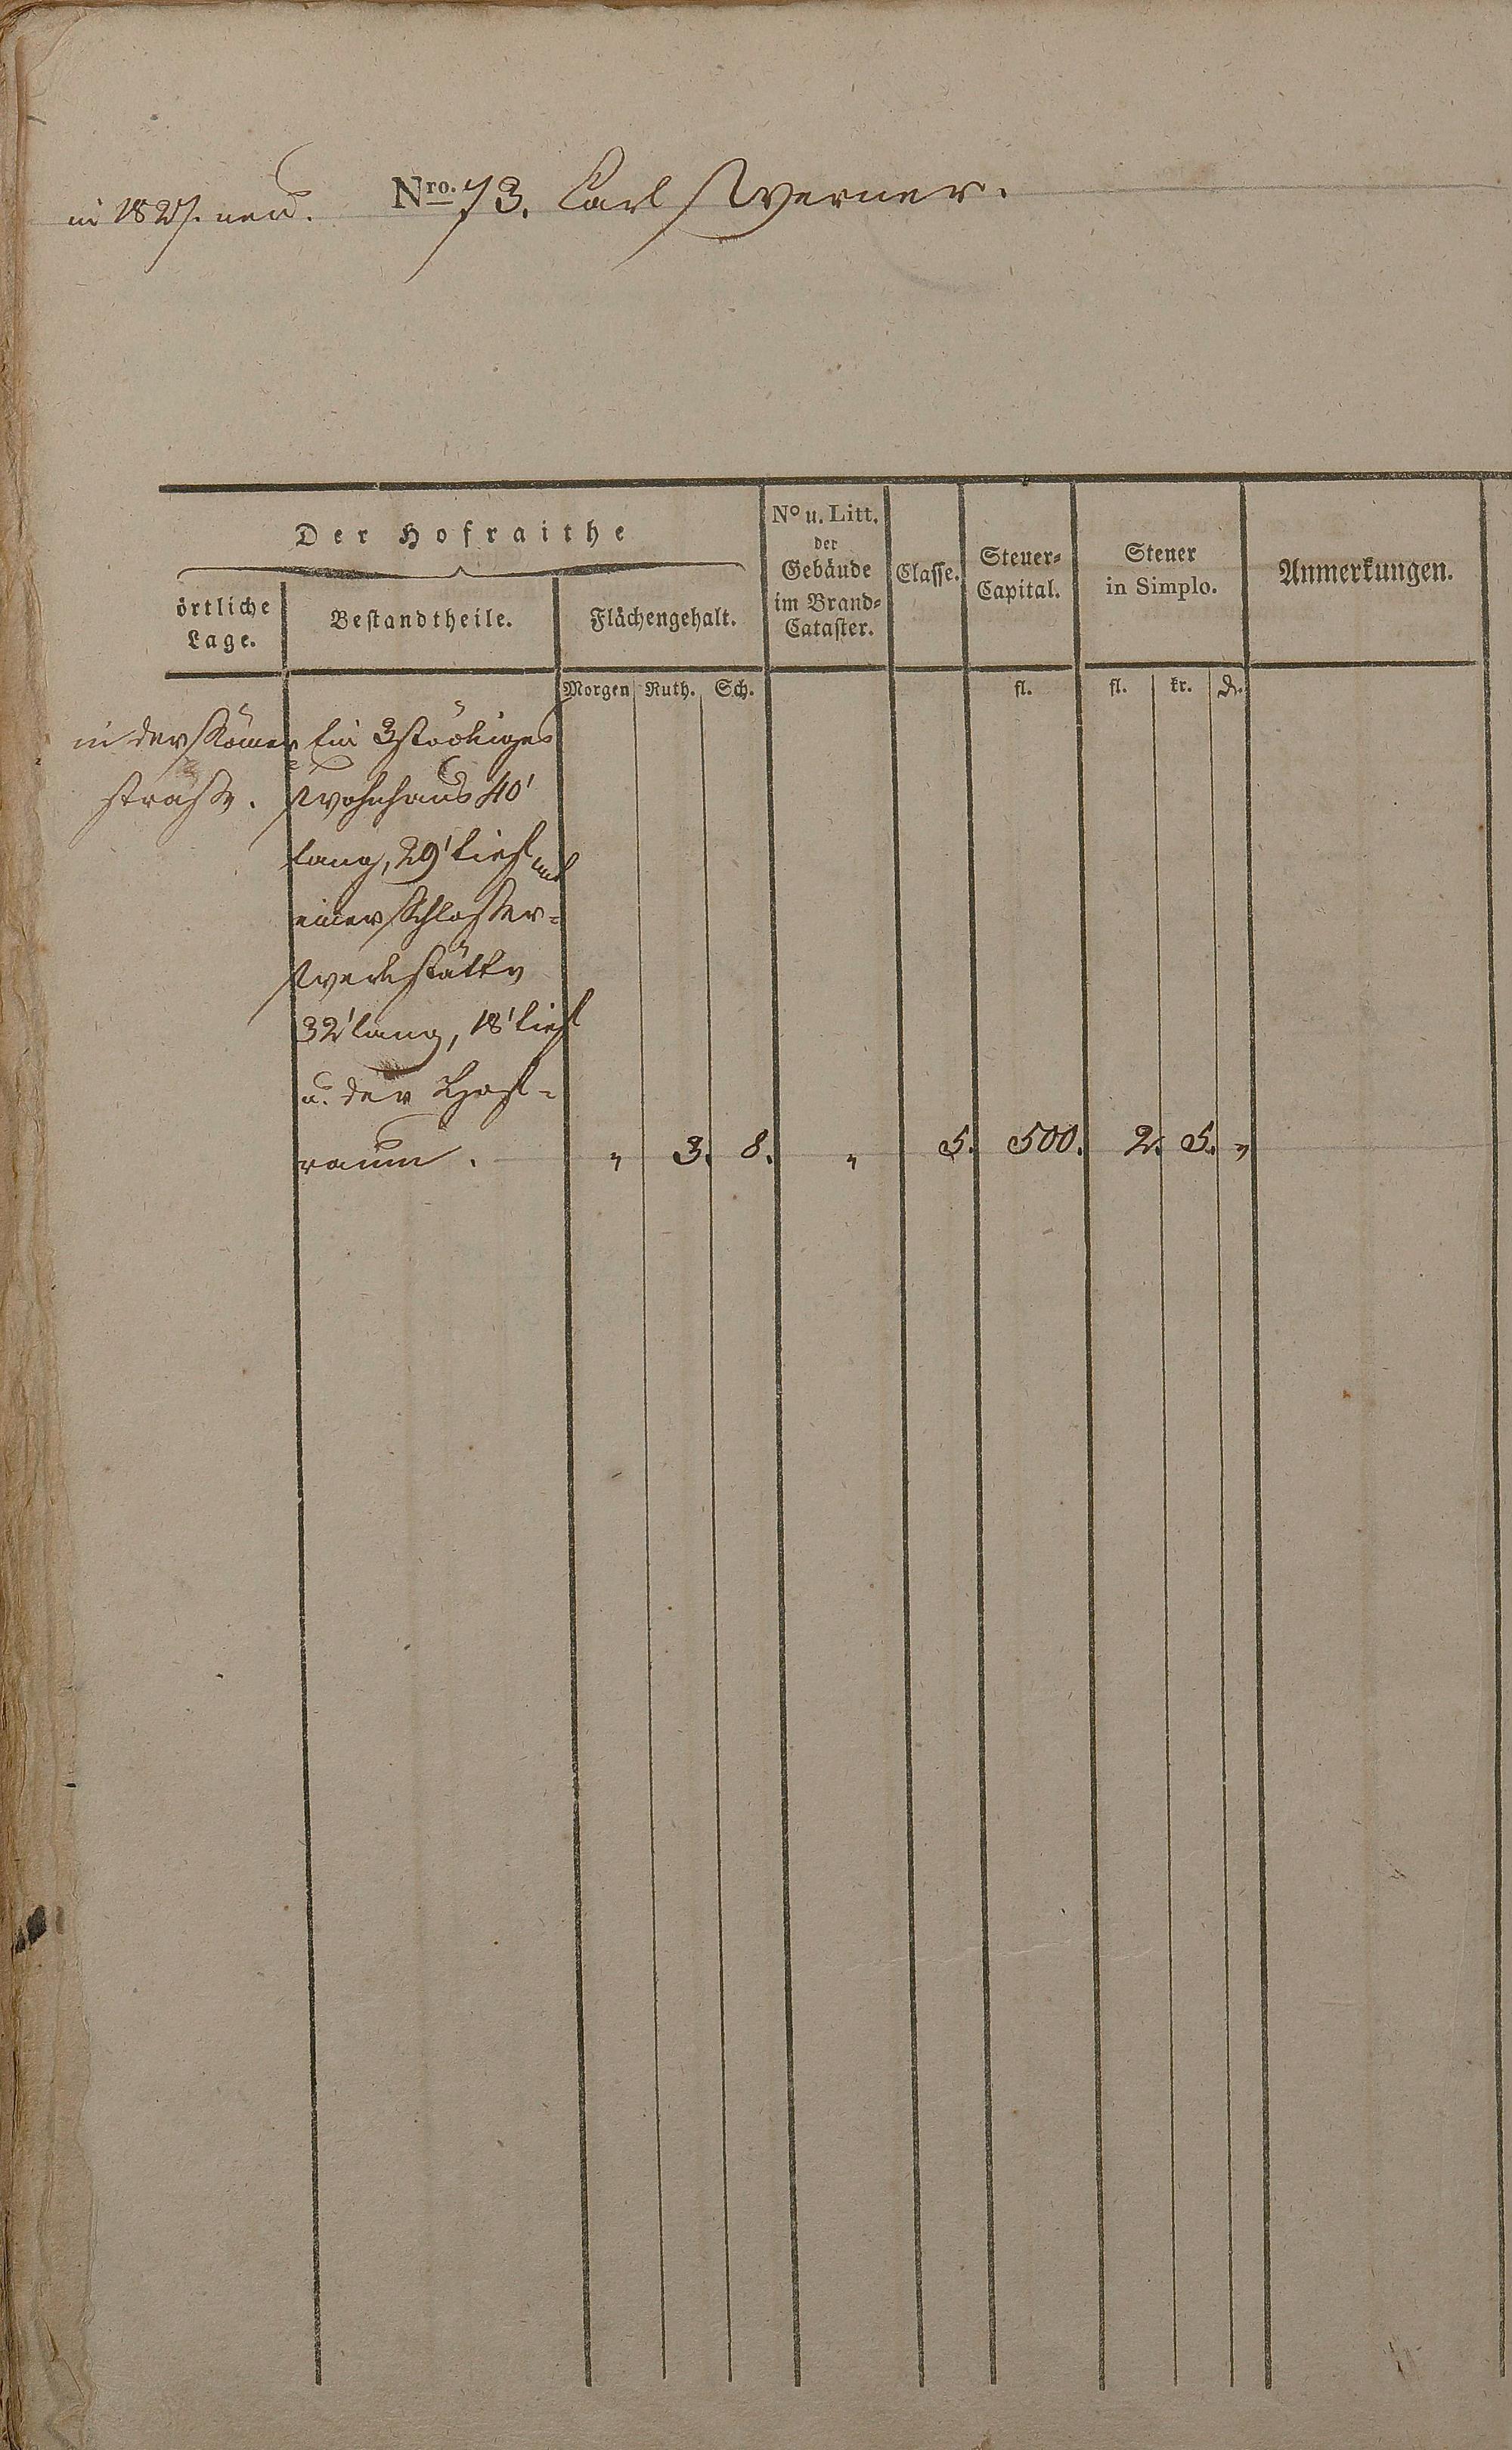 in 1827. neu. Nro. 73. Carl Werner.
Der Hofraithe
örtliche
Lage.
Bestandtheile.
Flächengehalt.
No u. Litt.
der
Gebäude
im Brand-
Cataster.
Classe.
Steuer-
Capital.
Steuer
in Simplo.
Anmerkungen.
Morgen Ruth. Sch. fl. fl. kr. d.
in der Römer
straße.
Ein 3stöckiges
Wohnhaus 40'
lang, 29' tief mit
einer Schlosser-
Werkstätte
32' lang, 18' tief
u. der Hof-
raum. " 3. 8. " 5. 500. 2. 5. "